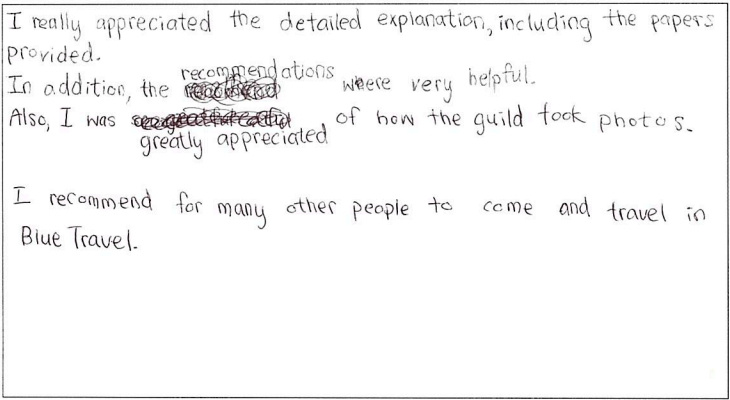 I really appreciated the detailed explanation, including the papers
provided.
In addition, the recommendations where very helpful.
Also, I was greatly appreciated of how the guild took photos.
I recommend for many other people to come and travel in
Blue Travel.